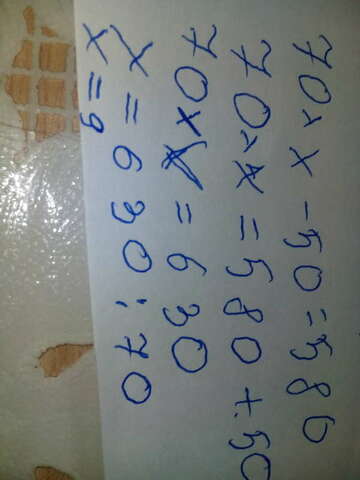 70 x x - 50 = 580
70 x x = 580 + 50
70 x x = 630
x = 630 : 70
x = 9